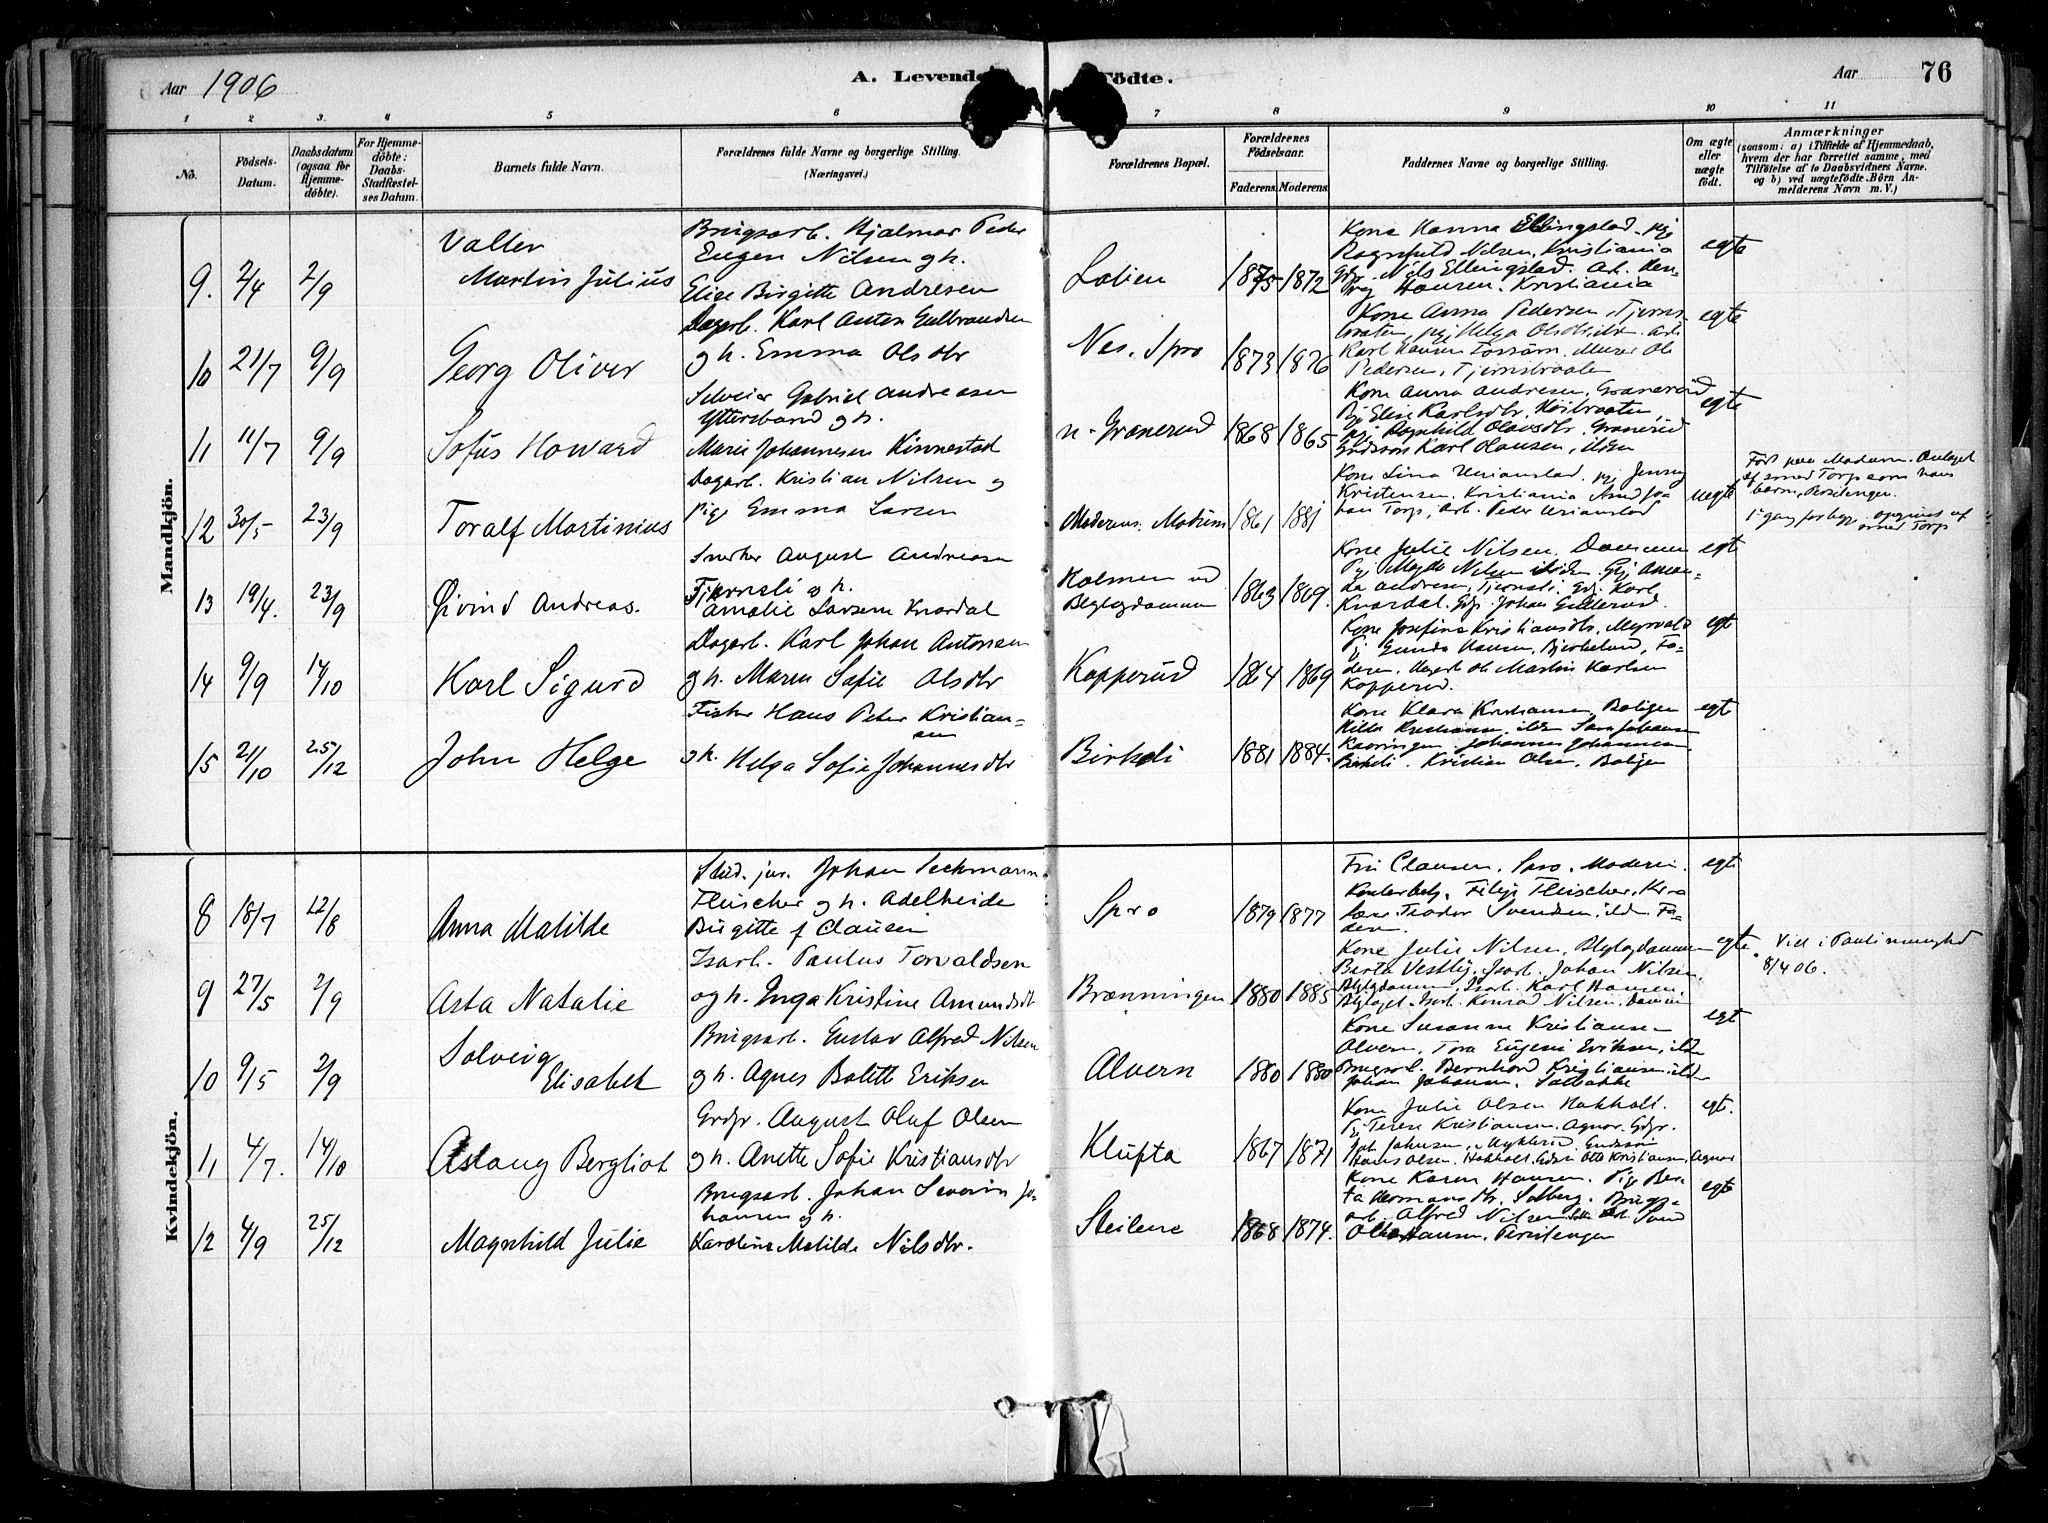 Aar 1906
A. Levende
Födte.
Aar
76
1 2 3. 4 5 6 7 8 9 10 11
No.
Födsels-Datum.
Daabsdatum (ogsaa for Hjemme-döbte).
For Hjemme-döbte: Daabs-Stadfæstel-ses Datum.
Barnets fulde Navn.
Forældrenes fulde Navne og borgerlige Stilling. (Næringsvei.)
Forældrenes Bopæl.
Forældrenes Födselsaar.
Faderens. Moderens.
Faddernes Navne og borgerlige Stilling.
Om ægte eller uægte födt.
Anmærkninger
(saasom: a) i Tilfælde af Hjemmedaab,
hvem der har forrettet samme, med
Tilföielse af to Daabsvidners Navne.
og b) ved uægtefödte Börn An-
melderens Navn m. V.)
Mandkjön.
9. 2/4 2/9
Valler
Martin Julius
Brugsarb. Hjalmar Peder
Eugen Nilsen og h.
Elise Birgitte Andresen
1875 1872
Kone Hanna Ellingstad, pige
Ragnhild Nilsen, Kristiania
Gdr. Nils Ellingstad. Arb.
Hansen. Kristiania
egte
10 21/7 9/9
Georg Oliver
Dagarb. Karl Anton Gulbrandsen
og h. Emma Olsdtr
Nes. Spro
1873 1876
Kone Anna Pedersen, Tjerns-
braaten, pige Helga Olsdtr, arb.
Karl Hansen, Murer Ole
Pedersen, Tjernsbraaten
egte
11 11/7 9/9
Sofus Howard
Selveier Gabriel Andreasen
Yttersbund og h.
Marie Johannesen Kinnestad
n. Granerud
1868 1865
Kone Anna Andresen, Granerud
Pige Elise Karlsdtr, Höibraaten,
pige Ragnhild Olavsdtr, Granerud
Gaardsbr. Karl Olausen, ilden
egte
12 30/5 23/9
Toralf Martinius
Dagarb. Kristian Nilsen og
pige Emma Larsen
Moderens: Modum
1861 1881
Kone Lina Urianstad, pige Jenny
Kristensen, Kristiania
Torp, arb. Peder Urianstad
uegte
Född paa Modum. Antaget
af smed Torp som hans
barn, Persilengen.
1ste gang for begge. opgives af
smed Torp
13 19/4. 23/9
Øivind Andreas.
Snedker August Andreasen
Fjernsli og h.
Amalie Larsen Knardal
Kolmen ved
Blylagdammen
1863 1869.
Kone Julie Nilsen, Dammen
Pige Magda Nilsen ibiden. Pige Aman-
da Andresen, Tjernsli. Gdr. Karl
Knardal. Gdr. Johan Gullerud.
egte
14 9/9 14/10
Karl Sigurd
Dagarb. Karl Johan Antonsen
og h. Maren Sofie Olsdtr
Kopperud
1864 1869
Kone Josefine Kristiansdtr, Myrvold
Pige Gunda Hansen, Bjerkelund, Fa-
deren, Martin Karlsen
Kopperud.
egt
15 21/10 25/12
John Helge
Fisker Hans Peter Kristian-
sen
og h. Helga Sofie Johannesdtr
Birkeli
1881 1884.
Kone Klara Kristiansen, Boligen
Hilda Kristiansen, ilden Sara Johansen
Kavringen. Johannes Johannesen
Birkeli. Kristian Olsen, Boligen
egt
Kvindekjön.
8 18/7 12/8
Anna Matilde
Stud. jur. Johan Seckmann
Fleischer og h. Adelheide
Birgitte f Clausen
Spro
1879 1877
Fru Clausen, Spro. Moderen.
Filip Fleischer, Kra
Teodor Svendsen, ilden Fa-
deren.
egt
9 27/5 2/9
Asta Natalie
Isarb. Paulus Torvaldsen
og h. Inga Kristine Amundsdtr
Brænningen
1880 1885
Kone Julie Nilsen, Blylagdammen
Berta Vestby, Isarb. Johan Nilsen,
Blylagdammen, Isarb. Karl Hansen,
Blylaget. Isarb. Konrad Nilsen, Dammen
egte
Viet i Pauli menighed
8/4 06.
10 9/5 2/9
Solveig
Elisabet
Brugsarb. Gustav Alfred Nilsen
og h. Agnes Bolette Eriksen
Alvern
1880 1880
Kone Susanne Kristiansen
Alvern, Tora Eugenie Eriksen, ilden
Brugsarb. Bernhard Kristiansen, ilden
Johan Johansen, Solbakke
egt
11 4/7. 14/10
Aslaug Bergliot
Grdbr. August Oluf Olsen
og h. Anette Sofie Kristiansdtr
Klufta
1867 1871
Kone Julie Olsen Hokholt.
Pige Terese Kristiansen, Agnor. Gdbr.
Johansen, Myklerud, Gaardssøn
Hans Olsen, Hokholt. Gdsøn Otto Kristiansen, Agnor
egt.
12 4/9 25/12
Magnhild Julie
Brugsarb. Johan Severin Jo-
hansen og h.
Karoline Matilde Nilsdtr.
Steilene
1868 1874.
Kone Karen Hansen. Pige Ber-
ta Hermansdtr, Solberg. Brugs-
arb. Alfred Nilsen
Hansen, Persilengen
egte